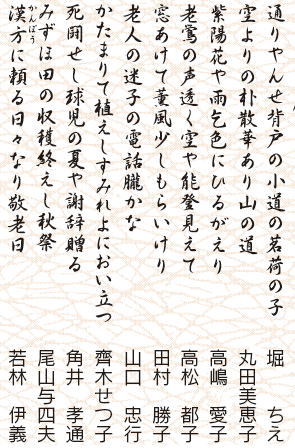 通りゃんせ背戸の小道の茗荷の子 堀 ちえ
空よりの朴散華あり山の道 丸田美恵子
紫陽花や雨乞色にひるがえり 高嶋 愛子
老鶯の声透く空や能登見えて 高松 都子
窓あけて薫風少しもらいけり 田村 勝子
老人の迷子の電話朧かな 山口 忠行
かたまりて植えしすみれよにおい立つ 齊木せつ子
死闘せし球児の夏や謝辞贈る 角井 孝通
みずほ田の収穫終えし秋祭 尾山与四夫
漢方に頼る日々なり敬老日 若林 伊義
かんぽう